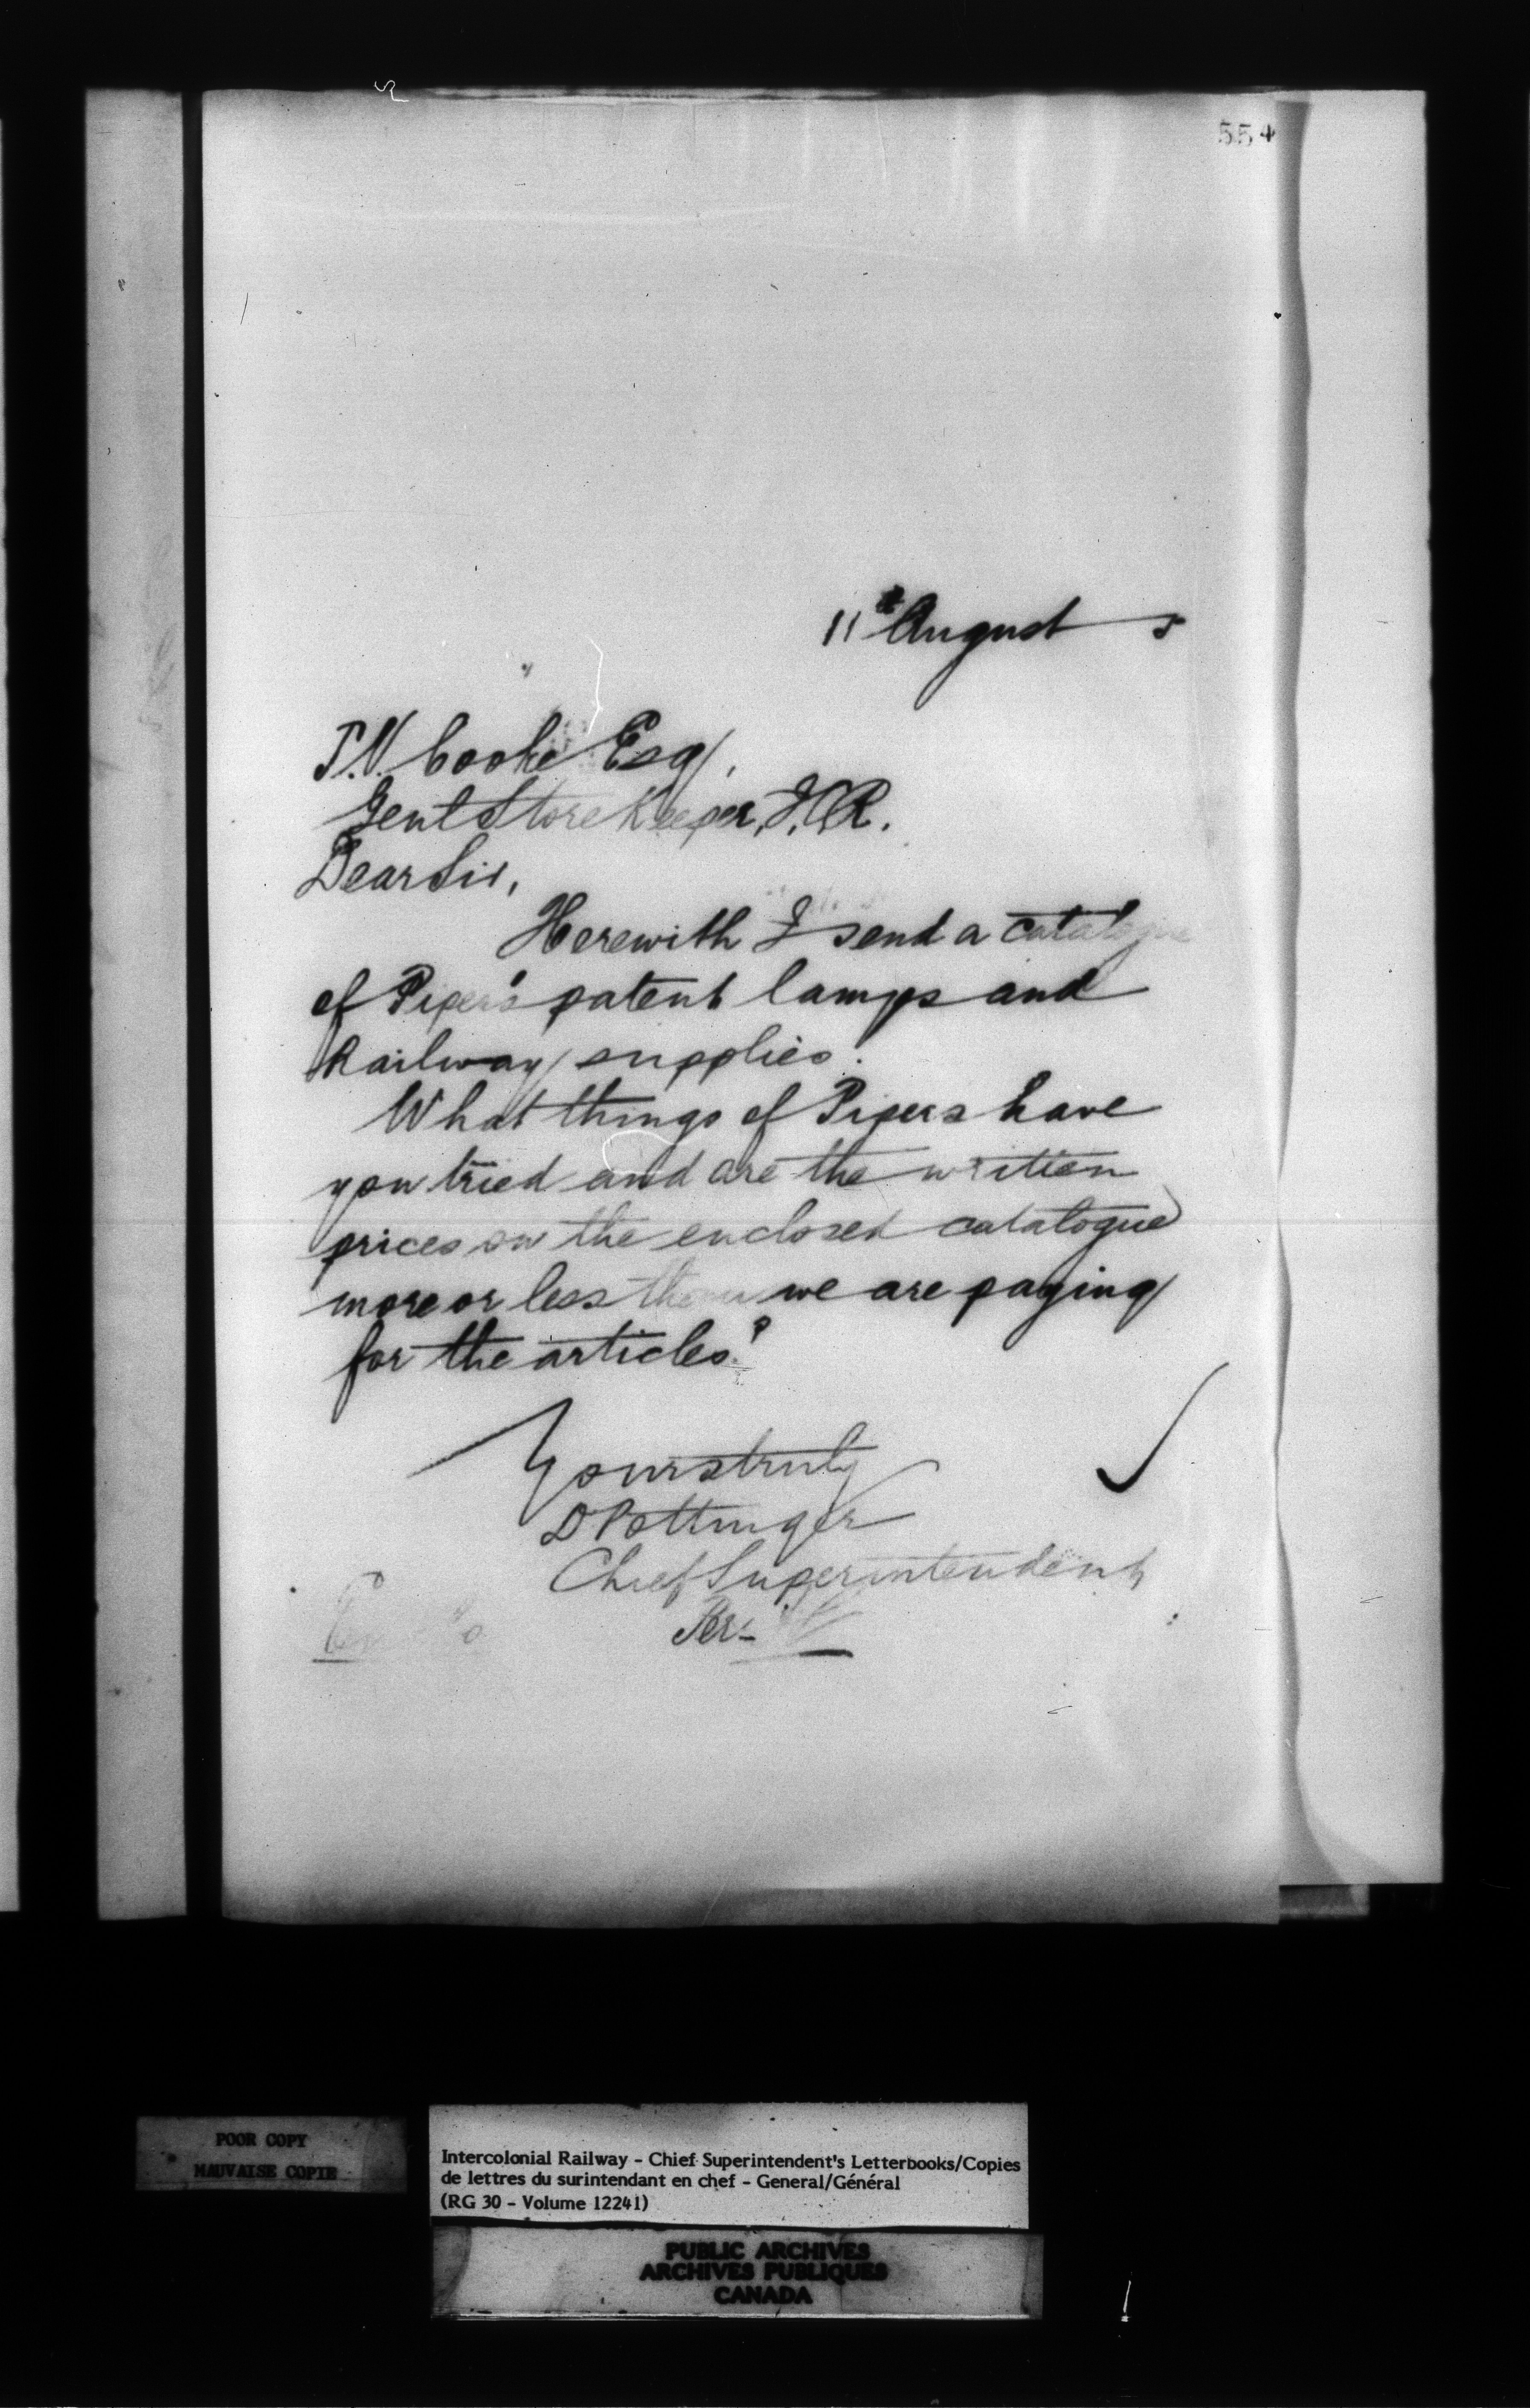 554
11th August 5
T.V. Cooke Esq,
Genl Store Keeper, I.C.R.
Dear Sir,
Herewith I send a catalogue
of Piper's patent lamps and
Railway supplies.
What things of Pipers have
you tried and are the written
prices on the enclosed catalogue
more or less than we are paying
for the articles?
Yours truly
D Pottinger
Chief Superintendent
Per-
POOR COPY
MAUVAISE COPIE
Intercolonial Railway - Chief Superintendent's Letterbooks/Copies
de lettres du surintendant en chef - General/Général
(RG 30 - Volume 12241)
PUBLIC ARCHIVES
ARCHIVES PUBLIQUES
CANADA